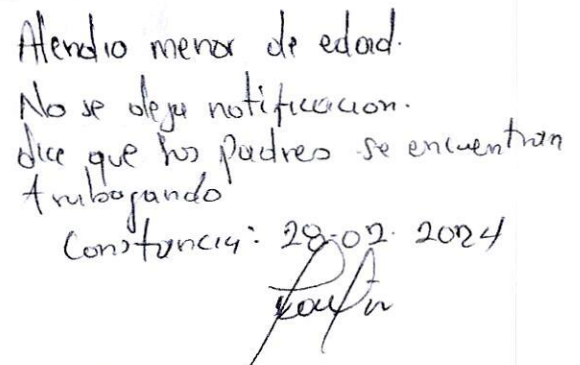 Atendio menor de edad.
No se deja notificacion.
dice que los padres se encuentran
trabajando
Constancia: 28-02-2024